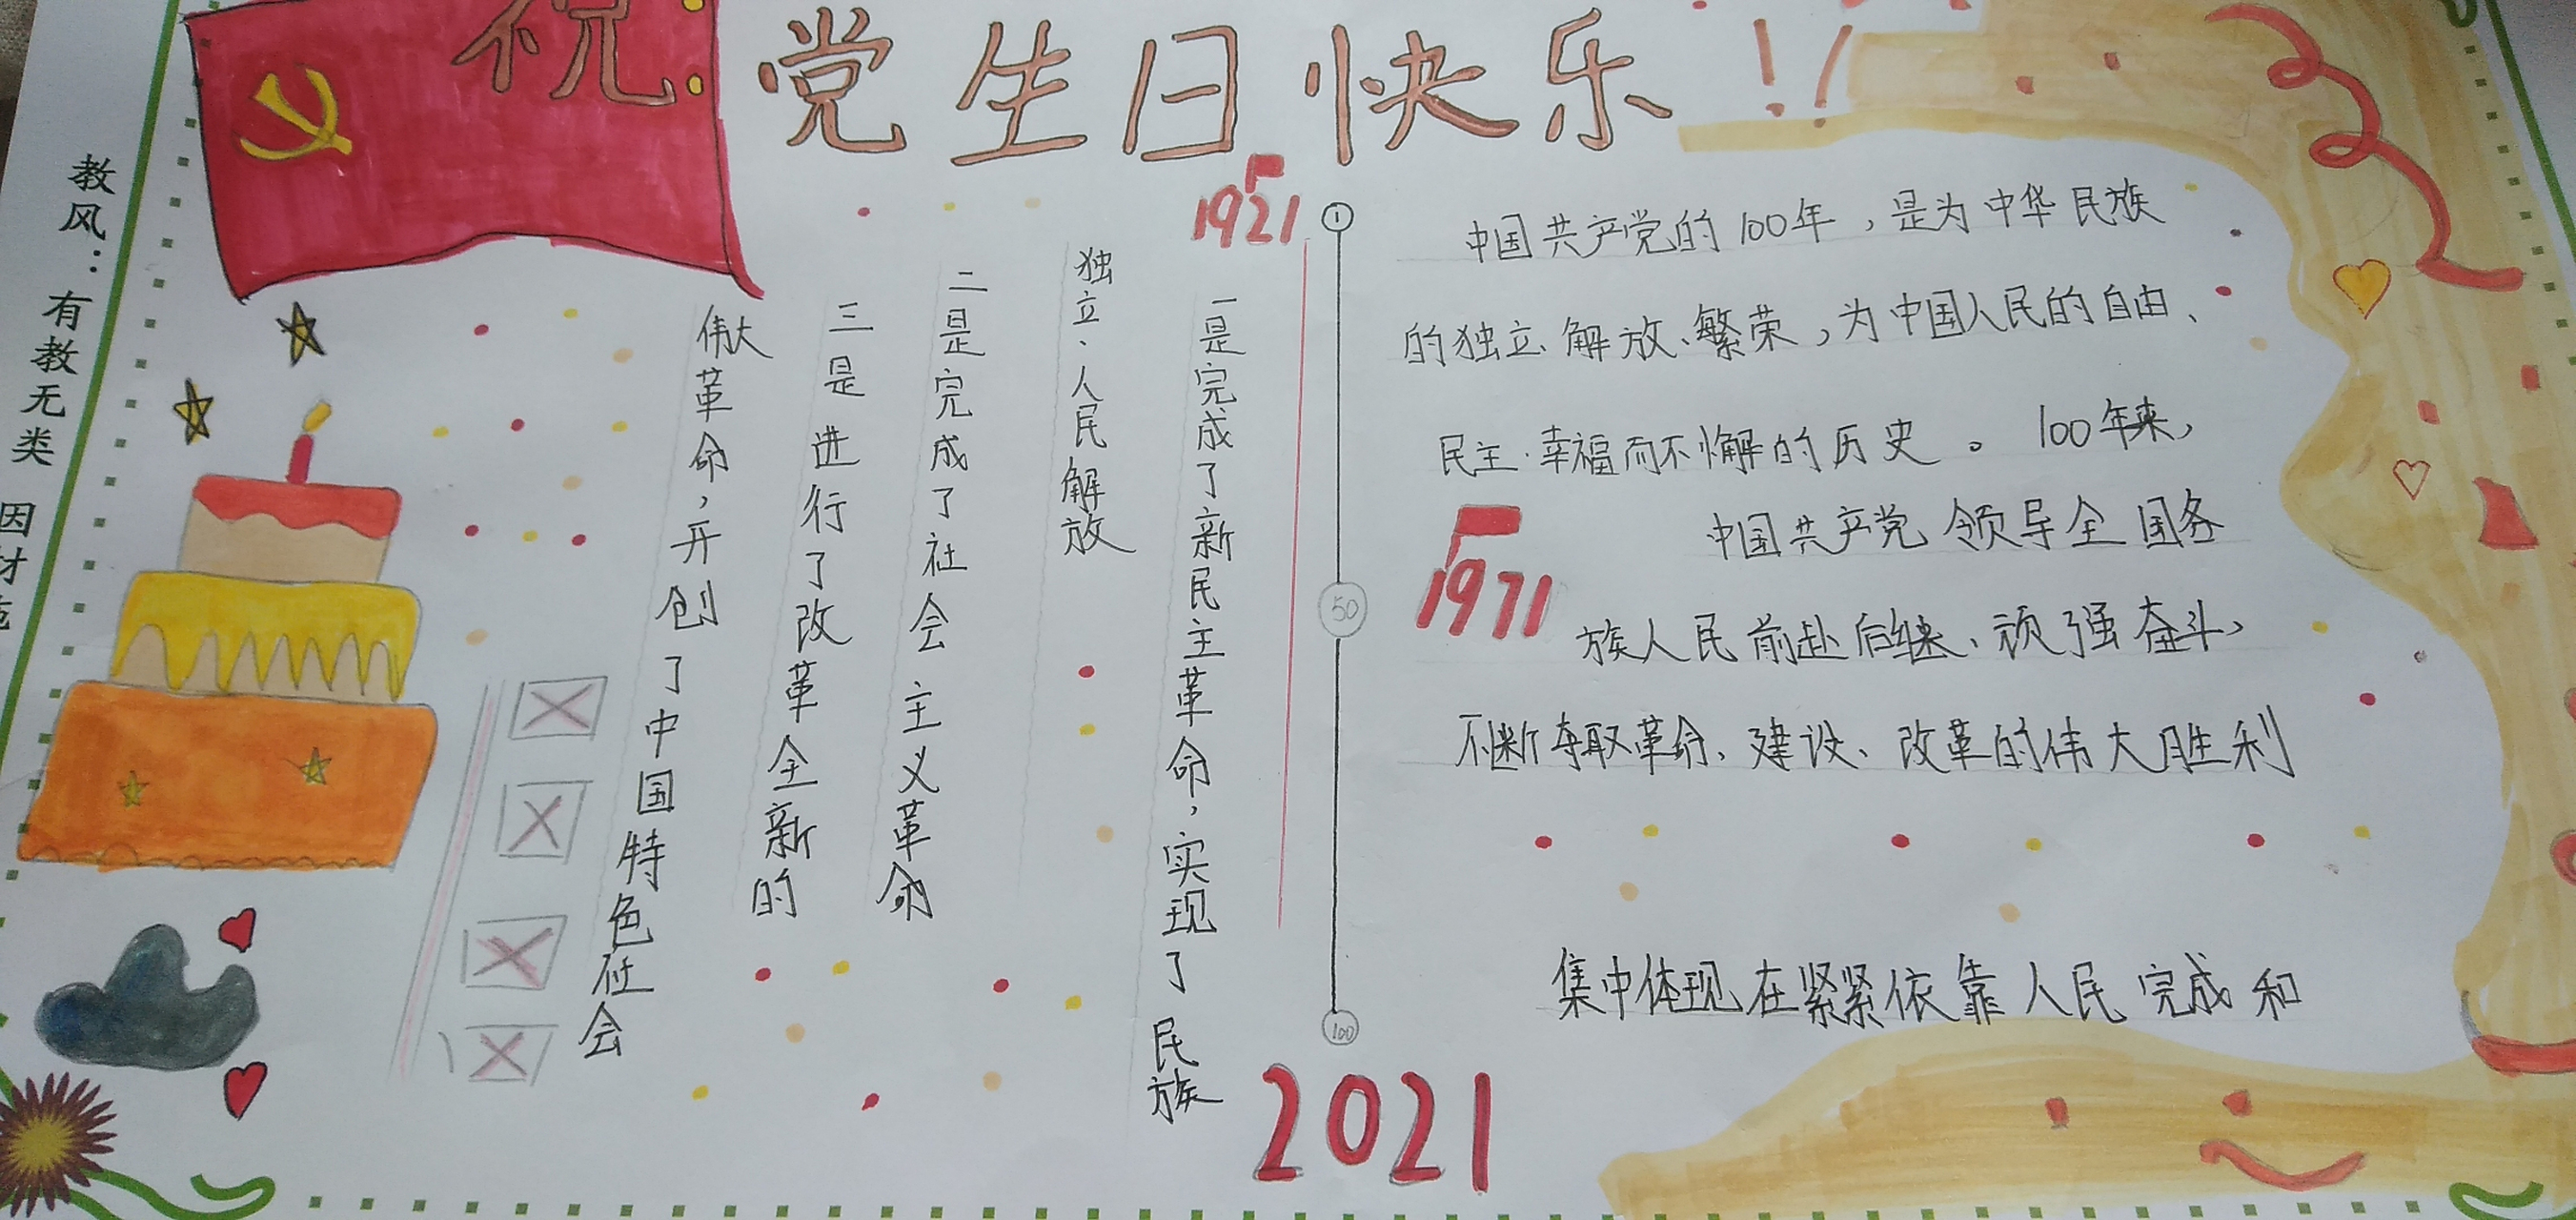 祝:党生日快乐!!
教风：有教无类 因材
1921
1
中国共产党的100年，是为中华民族
的独立、解放、繁荣，为中国人民的自由、
民主、幸福而不懈的历史。100年来，
中国共产党领导全国各
1971
50
族人民前赴后继、顽强奋斗，
不断夺取革命、建设、改革的伟大胜利
集中体现在紧紧依靠人民完成和
100
2021
一是完成了新民主革命，实现了民族
独立、人民解放
二是完成了社会主义革命
三是进行了改革全新的
伟大革命，开创了中国特色社会